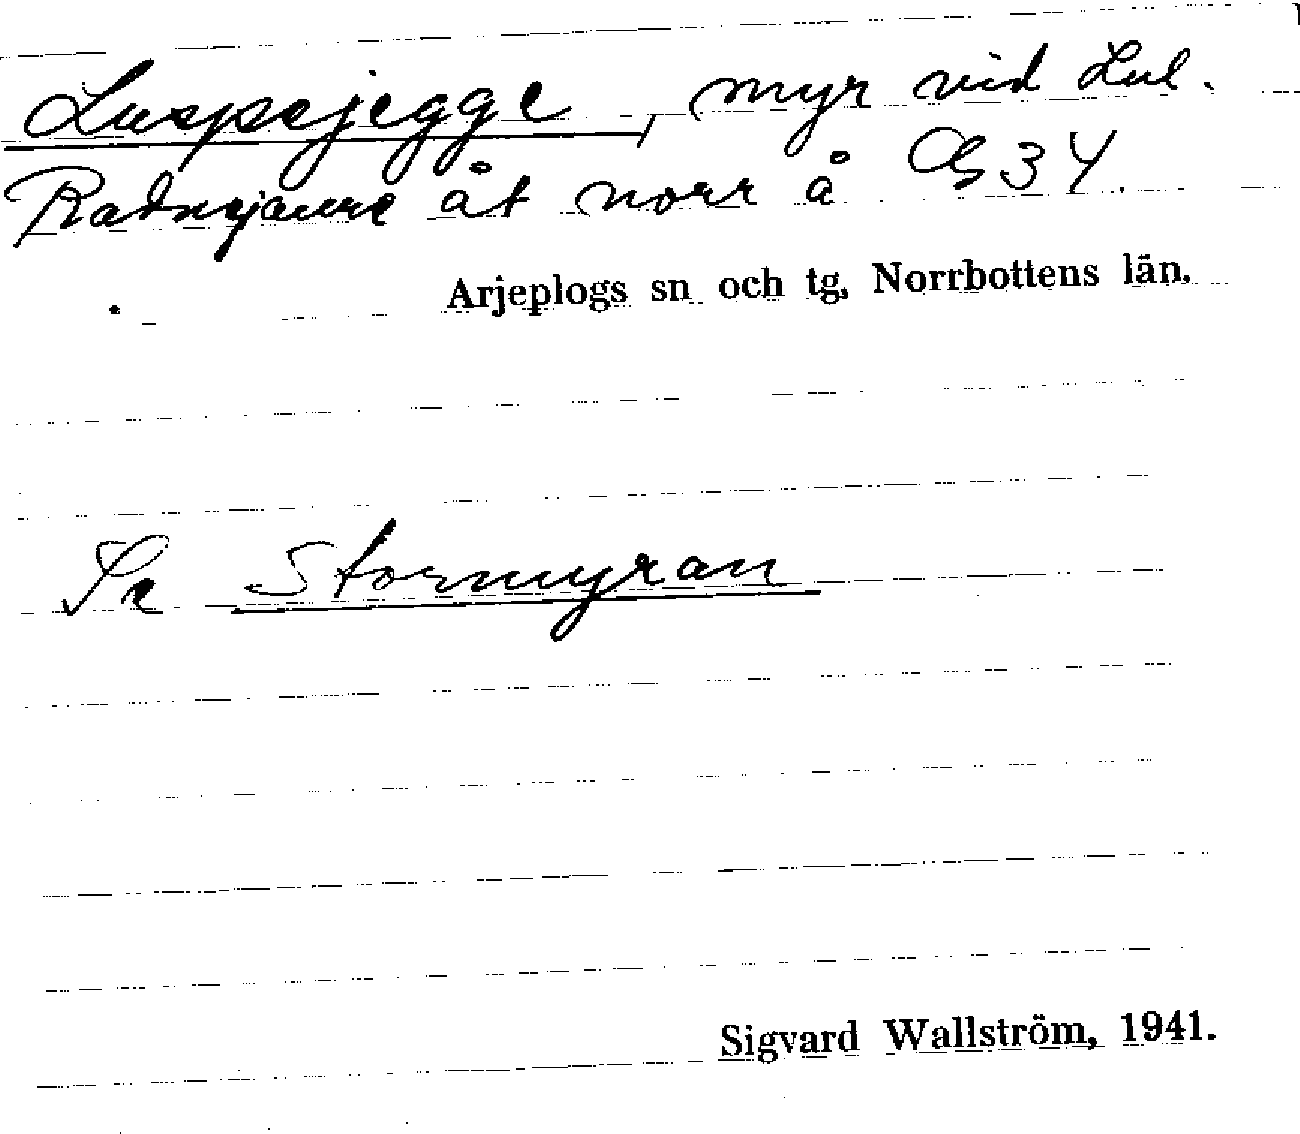 Luspejegge, myr vid Lul.
Radnejaure åt norr å G 3 Y.
Arjeplogs sn och tg, Norrbottens län.
Se Stormyran
Sigvard Wallström, 1941.